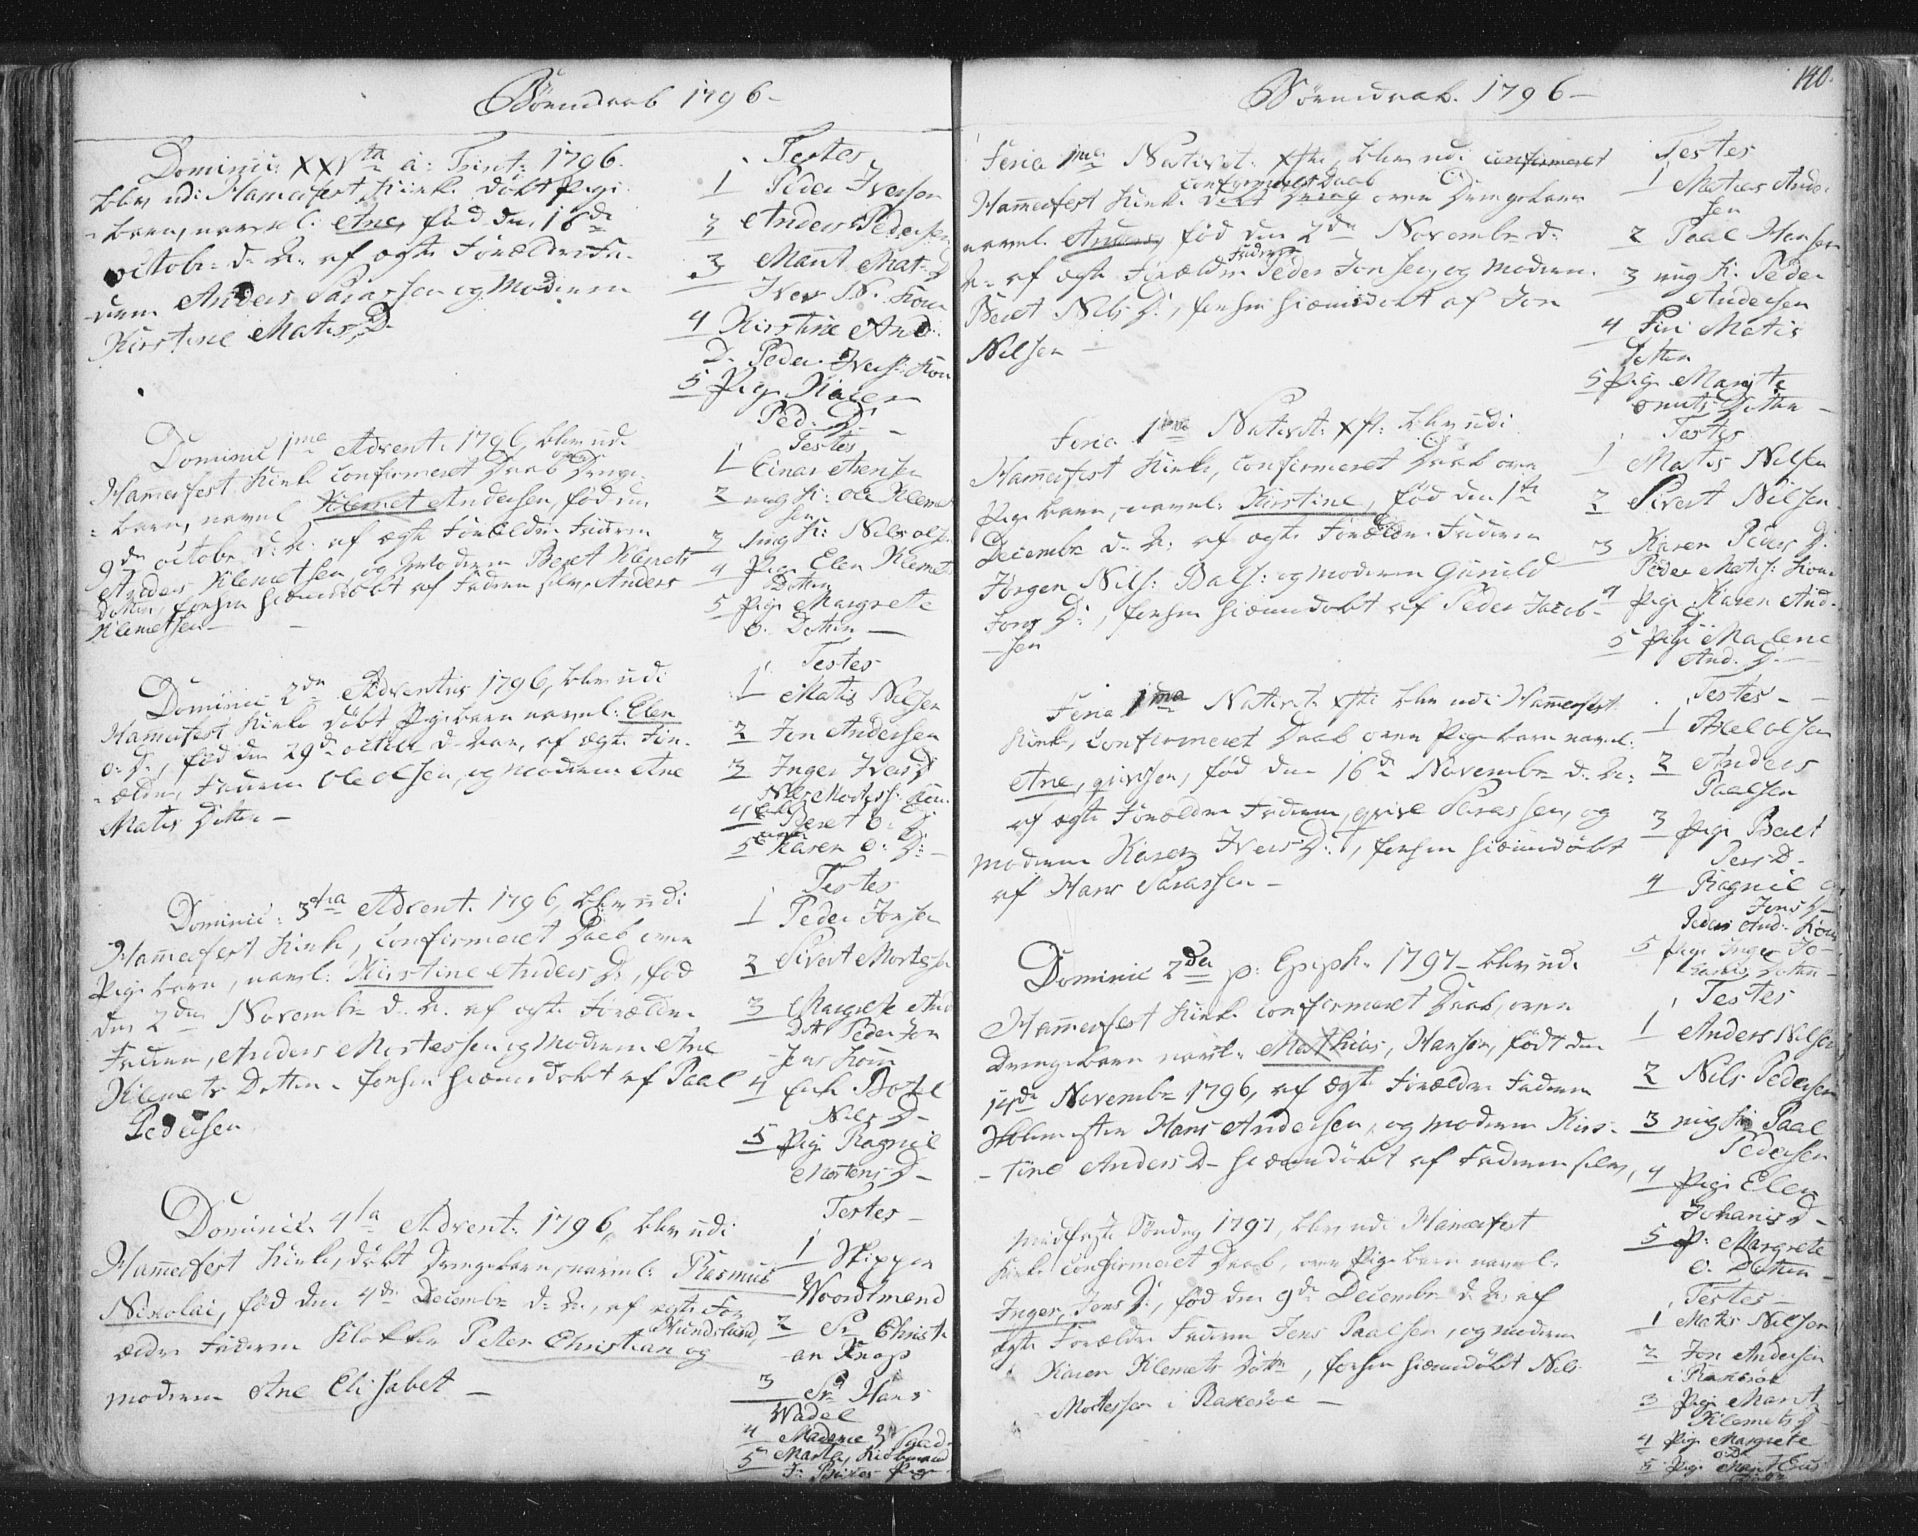 Børnedaab 1796
Dominic: XXVta a: Trinit: 1796.
blev udi Hamerfest Kirke døbt Pige
barn, navnl. Ane, fød den 16de
octobr: d: A: af ægte Forældre Fa-
deren Anders Sarassen og Moderen
Kirstine Matis D.
Testes
1 Peder Iversen
2 Anders Pedersen
3 Marit Mat: D
Iver N. Kone
4 Kirstine And:
D. Peder Ivers: Kone
5 Pige Maren
Ped: D.
Dominic 1ma Advent. 1796, blev udi
Hamerfest Kirke confirmeret Daab over Drenge
barn, navnl Klemet Andersen, fød den
9de octobr. d. A: af ægte Forældre Faderen
Anders Klemetsen og Moderen Beret Klemets
Datter, forhen hiemmedøbt af Faderen selv Anders
Klemetsen
Testes
1 Einar
2 ung K: Ole Klemet
sen
3 ung K: Nils ols:
4 Pige Elen Klemets
Datter
5 Pige Margrete
O. Datter
Dominic 2da Adventus 1796, blev udi
Hamerfest Kirke døbt Pigebarn navnl: Elen
O: D:, fød den 29de octobr d: Aar, af ægte For-
ældre, Faderen Ole olsen, og Moderen Ane
Matis Datter
Testes
1 Matis Nilsen
2 Jon Andersen
3 Inger Ivers D
Nils Mortess: Kone
4 Beret O: D:
5 Karen O: D:
Dominic: 3tia Advent. 1796, blev udi
Hamerfest Kirke, confirmeret Daab over
Pigebarn, navnl: Kirstine Anders D:, fød
den 2den Novembr d. A. af ægte Forældre
Faderen, Anders Mortessen og Moderen Ane
Klemets Datter. forhen hiemmedøbt af Paal
Pedersen
Testes
1 Peder Jonsen
2 Sivert Mortessen
3 Margrete And
Datt Peder Jon
sens Kone
4 Enke Botel
Nils D
5 Pige Ragnil
Mortens D
Dominic. 4ta Advent. 1796, blev udi
Hamerfest Kirke, døbt Drengebarn, navnl: Rasmus
Nikolai, fød den 4de Decembr d: A:, af ægte For-
ældre Faderen Klokker Peter Christian Hundslund, og
Moderen Ane Elisabet
Testes
1 Skipper
Woordtmand
2 Sr Christi
an Knap
3 Sr Hans
Wadel
4 Madame
5 Marta,
Pige
Børnedaab. 1796
140.
Feria 1ma Nativit: Xsti, blev udi confirmeret
Hamerfest Kirke confirmeret Daab over Drengebarn
navnl. Anders, fød den 2den Novembr d:
A: af ægte Forældre Faderen Peder Jonsen, og Moderen
Beret Nils D:, forhen hiemmedøbt af Jon
Nilsen
Testes
1 Matias Ander
sen
2 Paal Hansen
3 ung K: Peder
Andersen
4 Siri Matis
Datter
5 Pige Margte
Datter
Feria 1ma Nativit: Xsti: blev udi
Hamerfest Kirke, confirmeret Daab over
Pigebarn, navnl: Kirstine, fød den 1te
Decembr d: A: af ægte Forældre Faderen
Jørgen Nils: Bals: og Moderen Gunild
Jons D:, forhen hiemmedøbt af Peder Jacob-
sen
Testes
1 Matis Nilsen
2 Sivert Nilsen
3 Karen Peders D:
Peder Matis: Kone
4 Pige Karen And:
D.
5 Pige Malene
And. D.
Feria 1ma Nativit Xsti blev udi Hamerfest
Kirke, confirmeret Daab over Pigebarn navnl:
Ane, fød den 16de Novembr d: A:
af ægte Forældre Faderen, Sarassen, og
Moderen Karen Ivers D:, forhen hiemmedøbt
af Hans Sarassen
Testes
1 Axel olsen
2 Anders
Paalsen
3 Pige Beret
Pers D
4 Ragnil
Jons D
Peder And: Kone
5 Pige Inger Jo-
hanis Datter
Dominic 2da p: Epiph: 1797 blev udi
Hamerfest Kirke confirmeret Daab, over
Drengebarn navnl: Mathias, Hansen, født den
14de Novembr 1796, af ægte Forældre Faderen
Skolemester Hans Andersen, og Moderen Kirs-
tine Anders D hiemmedøbt af Faderen selv,
Testes
1 Anders Nilsen
2 Nils Pedersen
3 ung K: Paal
Pedersen
4 Pige Elen
Johanis D
5 P: Margrete
O. Datter
Midfaste Søndag 1797, blev udi Hamerfest
Kirke confirmeret Daab, over Pigebarn navnl.
Inger, Jens D:, fød den 9de Decembr d. A: af
ægte Forældre Faderen Jens Paalsen, og Moderen
Karen Klemets Dattr, forhen hiemmedøbt Nils
Mortessen i Rakerøe
Testes
1 Matis Nilsen
2 Jon Andersen
i Rakerøe
3 Pige Marit
Klemets D
4 Pige Margrete
O D
5 Pige Marit
Datter